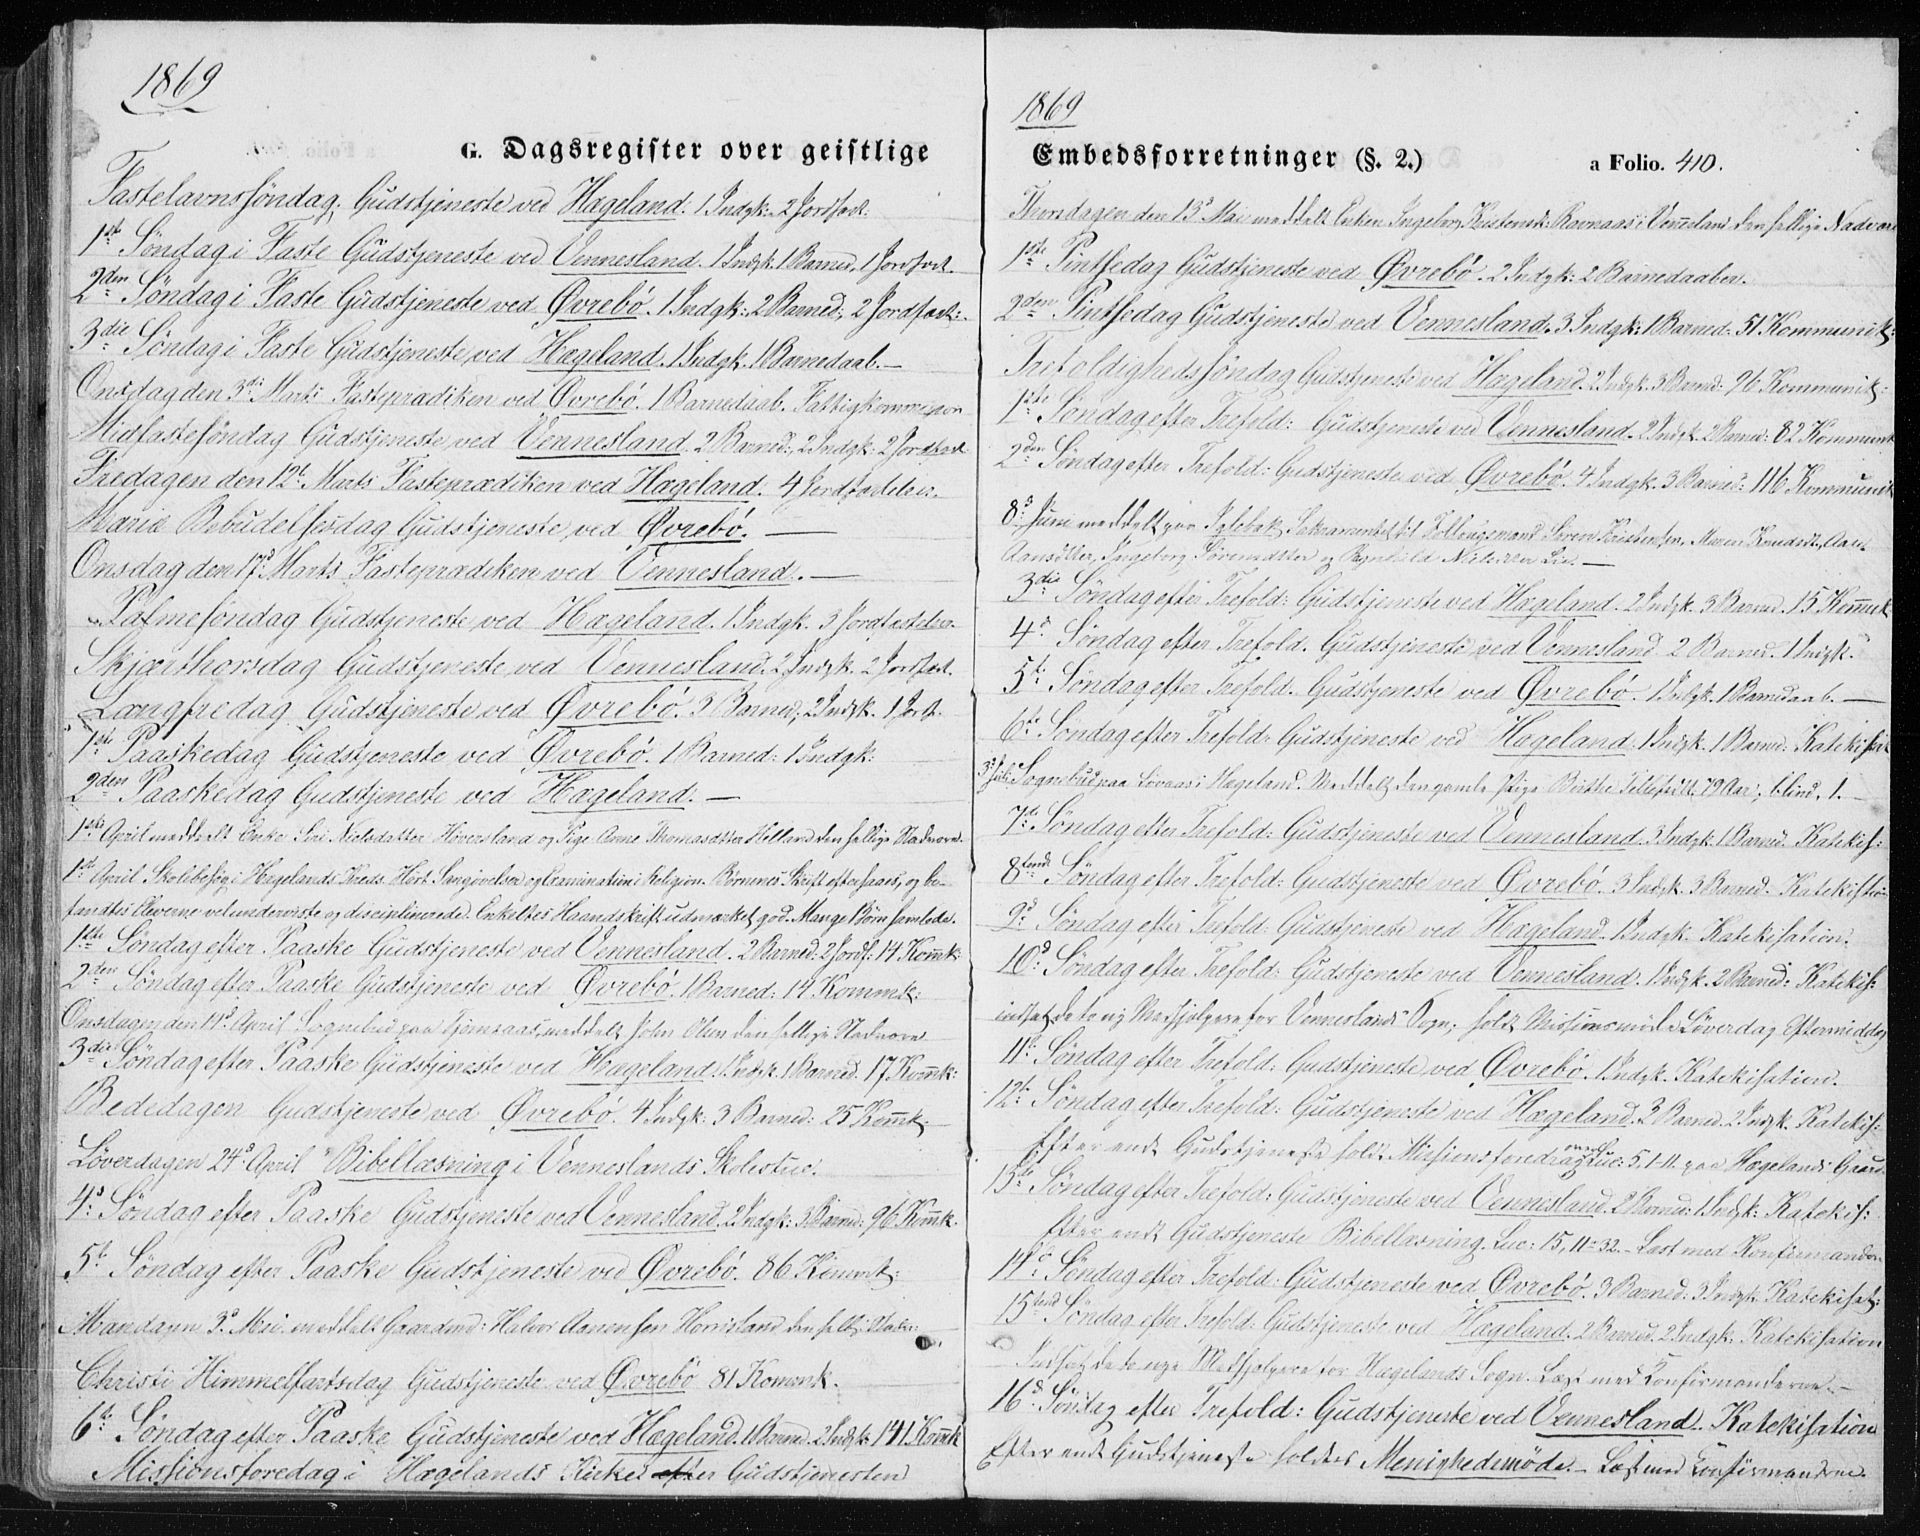 1869
G. Dagsregister over geistlige
Fastelavnssöndag, Gudstjeneste ved Hægeland. 1 Indgk: 2 Jordfæst:
1ste Søndag i Faste Gudstjeneste ved Vennesland. 1 Indgk. 1 Barned. 1 Jordfæst.
2den Søndag i Faste Gudstjeneste ved Øvrebö. 1 Indgk: 2 Barned: 2 Jordfæst:
3die Søndag i Faste Gudstjeneste ved Hægeland. 1 Indgk. 1 Barnedaab. —
Onsdag den 3die Marts Fasteprædiken ved Øvrebö. 1 Barnedaab. Fattigkommission
Midfastesöndag Gudstjeneste ved Vennesland. 2 Barned: 2 Indgk: 2 Jordfæst
Fredagen den 12te Marts Fasteprædiken ved Hægeland. 4 Jordfæstelser.
Mariæ Bebudelsesdag Gudstjeneste ved Øvrebö. —
Onsdag den 17d Marts Fasteprædiken ved Vennesland. —
Palmesöndag Gudstjeneste ved Hægeland. 1 Indgk. 3 Jordfæstelser.
Skjærthorsdag Gudstjeneste ved Vennesland. 2 Indgk. 2 Jordfæst.
Langfredag Gudstjeneste ved Øvrebö. 3 Barned; 2 Indgk. 1 Jordf.
1ste Paaskedag Gudstjeneste ved Øvrebö. 1 Barned: 1 Indgk:
2den Paaskedag Gudstjeneste ved Hægeland. —
1ste April meddelt Enke Siri Nielsdatter Höversland og Pige Anne Thomasdatter Helland den hellige Nadvere.
1ste April Skolebesøg i Hægelands Kreds. Hört Sangövelser og Examination i Religion. Börnenes Skrift eftersaaes, og be-
fandtes Eleverne vel underviste og disciplinerede. Enkeltes Haandskrift udmærket god. Mange Börn samlede.
1ste Søndag efter Paaske Gudstjeneste ved Vennesland. 2 Barned: 2 Jordf: 14 Komk:
2den Søndag efter Paaske Gudstjeneste ved Øvrebö. 1 Barned: 14 Kommk:
Onsdagen den 14d April Sognebud paa, meddelt John Olsen den hellige Nadvere
3die Søndag efter Paaske Gudstjeneste ved Hægeland. 1 Indgk. 1 Barned. 17 Komk:
Bededagen Gudstjeneste ved Øvrebö. 4 Indgk: 3 Barned: 25 Komk:
Löverdagen 24d April Bibellæsning i Venneslands Skolestue.
4d Søndag efter Paaske Gudstjeneste ved Vennesland. 2 Indgk: 3 Barned: 96 Komk.
5te Søndag efter Paaske Gudstjeneste ved Øvrebö. 86 Komnk:
Mandagen 3d Mai meddelt Gaardmd: Halvor Aanensen Horrisland den hell: Nadv:
Christi Himmelfartsdag Gudstjeneste ved Øvrebö 81 Komnk.
6te Søndag efter Paaske Gudstjeneste ved Hægeland. 1 Barned. 2 Indgk: 141 Komk
Missionsforedrag i Hægelands Kirke efter Gudstjenesten
1869
Embedsforretninger (§. 2.)
a Folio. 410.
Thorsdagen den 13d Mai meddelt Enken Ingeborg Ravnaas i Vennesland den hellige Nadvere
1ste Pintsedag Gudstjeneste ved Øvrebö. 2 Indgk: 2 Barnedaaber.
2den Pintsedag Gudstjeneste ved Vennesland. 3 Indgk: 1 Barned: 51 Kommunik:
Trefoldighedssöndag Gudstjeneste ved Hægeland. 2 Indgk. 3 Barned: 96 Kommunik:
1ste Søndag efter Trefold: Gudstjeneste ved Vennesland. 2 Indgk. 2 Barned: 82 Kommunk
2den Søndag efter Trefold: Gudstjeneste ved Øvrebö. 4 Indgk. 3 Barned: 116 Kommunik
8d Juni meddelt paa Sakramentet til Follougsmand Sören Kristensen, Maren
Ingeborg Sörensdatter og Lie. —
3die Søndag efter Trefold: Gudstjeneste ved Hægeland. 2 Indgk. 3 Barned. 15 Komnk
4d Søndag efter Trefold. Gudstjeneste ved Vennesland 2 Barned. 1 Indgk.
5te Søndag efter Trefold. Gudstjeneste ved Øvrebö. 1 Indgk. 1 Barnedaab. —
6te Søndag efter Trefold: Gudstjeneste ved Hægeland. 1 Indgk. 1 Barned. Katekisat
3d Juli Sognebud paa Lövaas i Hægeland. Meddelt den gamle Pige Birthe 79 Aar, blind, 1. —
7de Søndag efter Trefold: Gudstjeneste ved Vennesland. 3 Indgk. 1 Barned. Katekis:
8tende Søndag efter Trefold: Gudstjeneste ved Øvrebö. 3 Indgk. 3 Barned. Katekisation
9d Søndag efter Trefold: Gudstjeneste ved Hægeland. 1 Indgk. Katekisation.
10d Søndag efter Trefold: Gudstjeneste ved Vennesland. 1 Indgk. 2 Barned: Katekis:
indsat de to ny Medhjelpere for Venneslands Sogn; holdt Missionsmöde Löverdag Eftermiddag
11te Søndag efter Trefold: Gudstjeneste ved Øvrebö. 1 Indgk. Katekisation.
12te Søndag efter Trefold: Gudstjeneste ved Hægeland. 3 Barned. 2 Indgk. Katekis:
Efter endt Gudstjeneste holdt Missionsforedrag over Luc: 5, 1-11. paa Hægelands Gaard.
13de Søndag efter Trefold: Gudstjeneste ved Vennesland. 2 Barned: 1 Indgk: Katekis:
Efter endt Gudstjeneste Bibellæsning. Luc: 15, 11-32. — Læst med Konfirmanderne
14d Søndag efter Trefold: Gudstjeneste ved Øvrebö. 3 Barned: 3 Indgk. Katekisat:
15tend Søndag efter Trefold: Gudstjeneste ved Hægeland. 2 Barned. 2 Indgk: Katekisation
Indsat de to nye Medhjelpere for Hægelands Sogn. Læst med Konfirmanderne. —
16d Søndag efter Trefold: Gudstjeneste ved Vennesland. Katekisation
Efter endt Gudstjeneste holdtes Menighedsmöde. — Læst med Konfirmanderne.